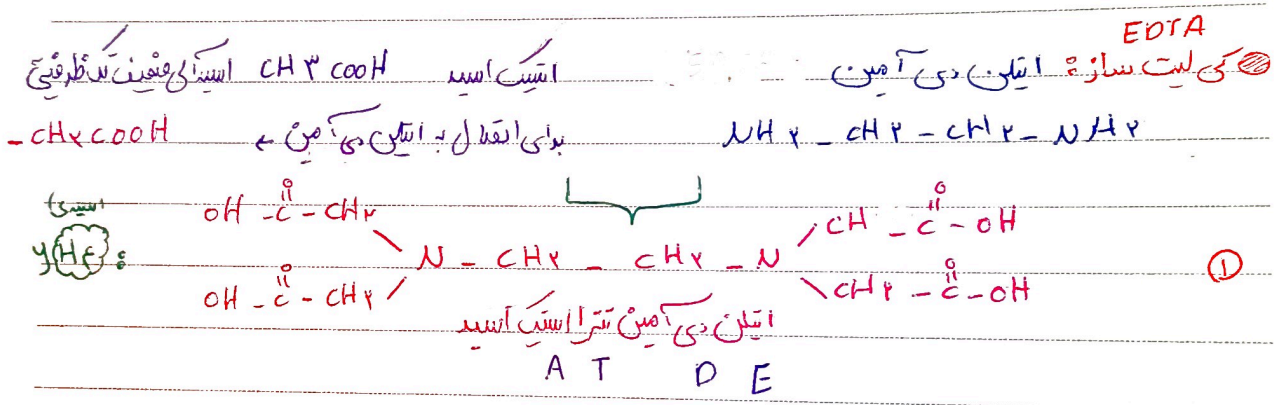 EDTA
کی لیت ساز : اتیلن دی آمین استیک اسید CH۳COOH اسید آلی ضعیف تک ظرفیتی
NH۲ - CH۲ - CH۲ - NH۲ برای اتصال به اتیلن دی آمین ← - CH۲COOH
O O
OH - C - CH۲ CH - C - OH اسیدی
N - CH۲ - CH۲ - N YH۴ : ①
O O
OH - C - CH۲ CH۲ - C - OH
اتیلن دی آمین تترا استیک اسید
A T D E